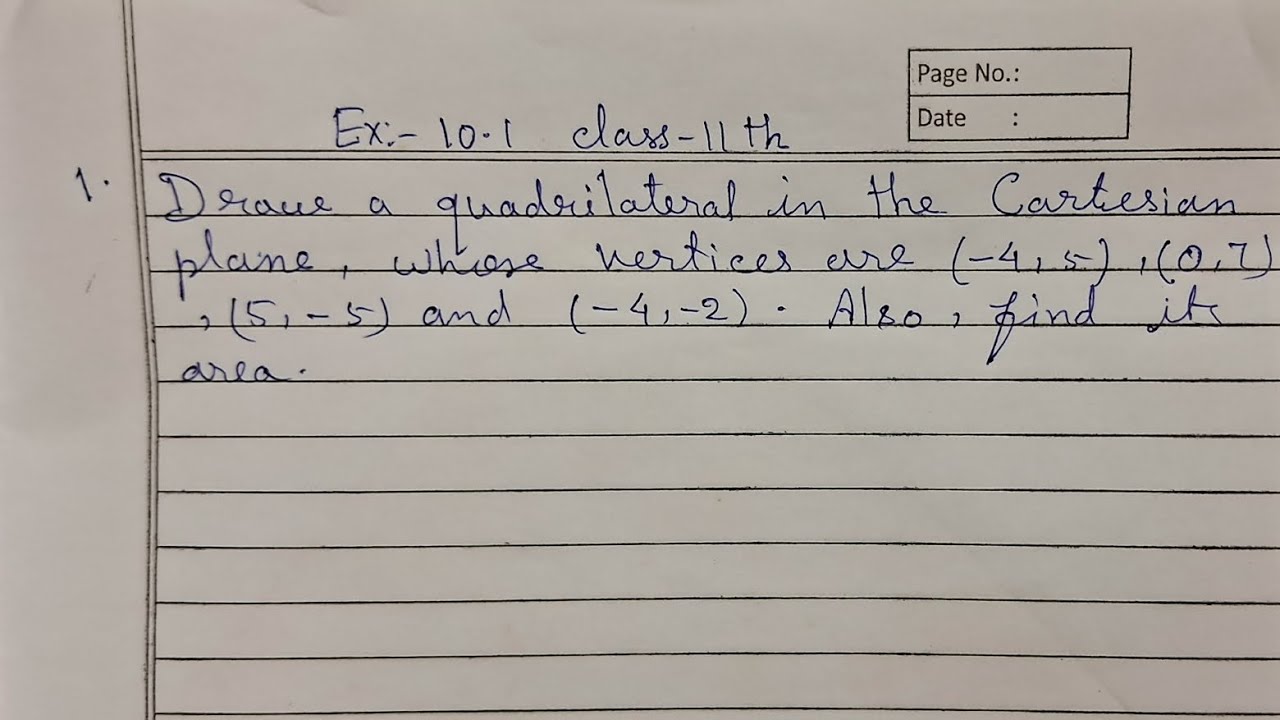 Page No.:
Date :
Ex:- 10.1 class-11th
1. Draw a quadrilateral in the Cartesian
plane, whose vertices are (-4, 5), (0,7)
, (5, -5) and (-4, -2). Also, find its
area.